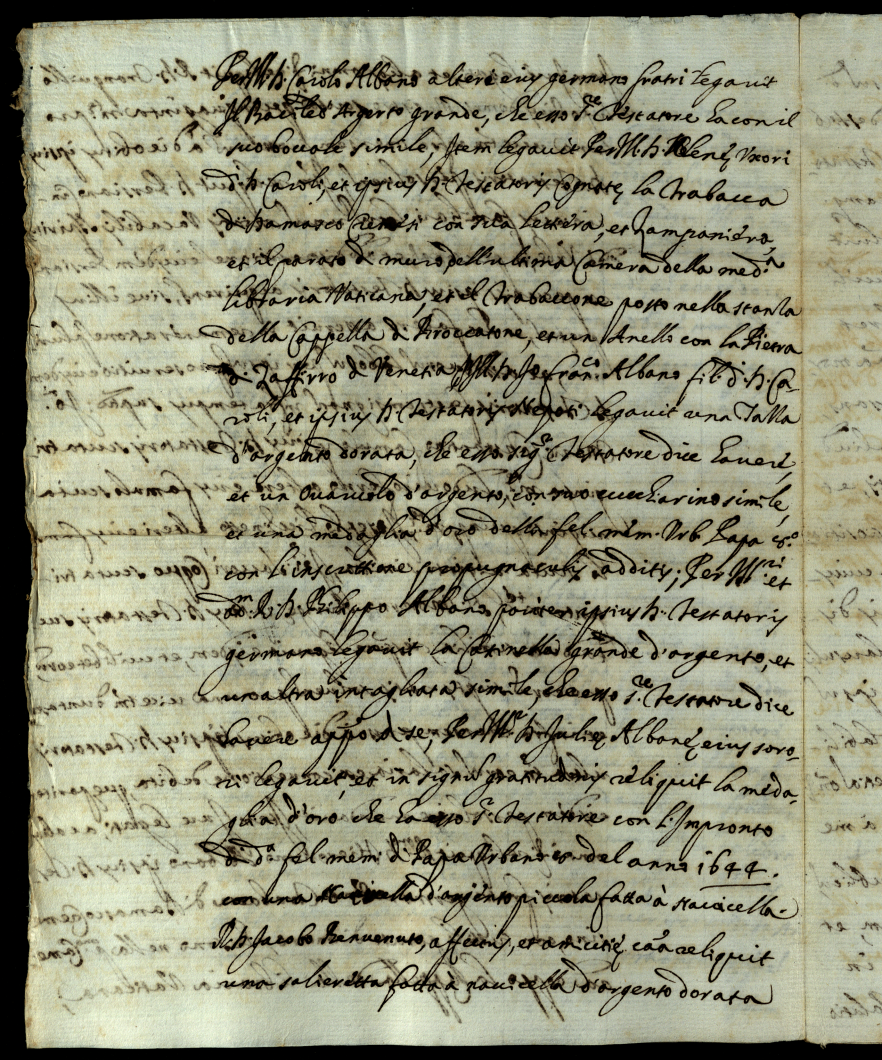 PerIll. D. Carolo Albano alteri eius germano fratri legauit
Il Bacile d'Argento grande, che esso S.re Testatore ha con il
suo bocale simile, Item legauit PerIll. D. Helenę Uxori
d. D. Caroli, et ipsius D. Testatoris Cognatę la Trabacca
di Damasco con sua lettiera, et Zampaniera,
et il parato di muro dell'ultima Camera della med.a
libraria Vaticana, et il Trabaccone posto nella stanza
della Cappella di Broccatone, et un Anello con la Pietra
di Zaffirro di Venetia Ill. D. Jo: Fran.co Albano fil. d. D. Ca-
roli, et ipsius D. Testatoris Nepoti legauit una Tazza
d'argento dorata, che esso Sig.re Testatore dice hauere,
et un Ouarolo d'argento, con suo cucchiarino simile,
et una medaglia d'oro della fel. mem. Urb. Papa 8.o
con l'inscrittione propugnaculis additis; PerIll.ri et
ad.m R. D. Philippo Albano pariter ipsius D. Testatoris
germano legauit la Catinella grande d'argento, et
un'altra intagliata simile, che esso S.re Testatore dice
hauere appo di se, PerIll. D. Julię Albanę eius soro-
ri legauit, et in signũ gratitudinis reliquit la meda-
glia d'oro che ha esso S.r Testatore con l'Impronto
di d.a fel. mem. di Papa Urbano 8. del anno 1644.
con una d'argento piccola fatta à Nauicella.
R. D. Jacobo Benuenuto, affectus, et amicitię cãa reliquit
una salieretta fatta à nauicella d'argento dorata